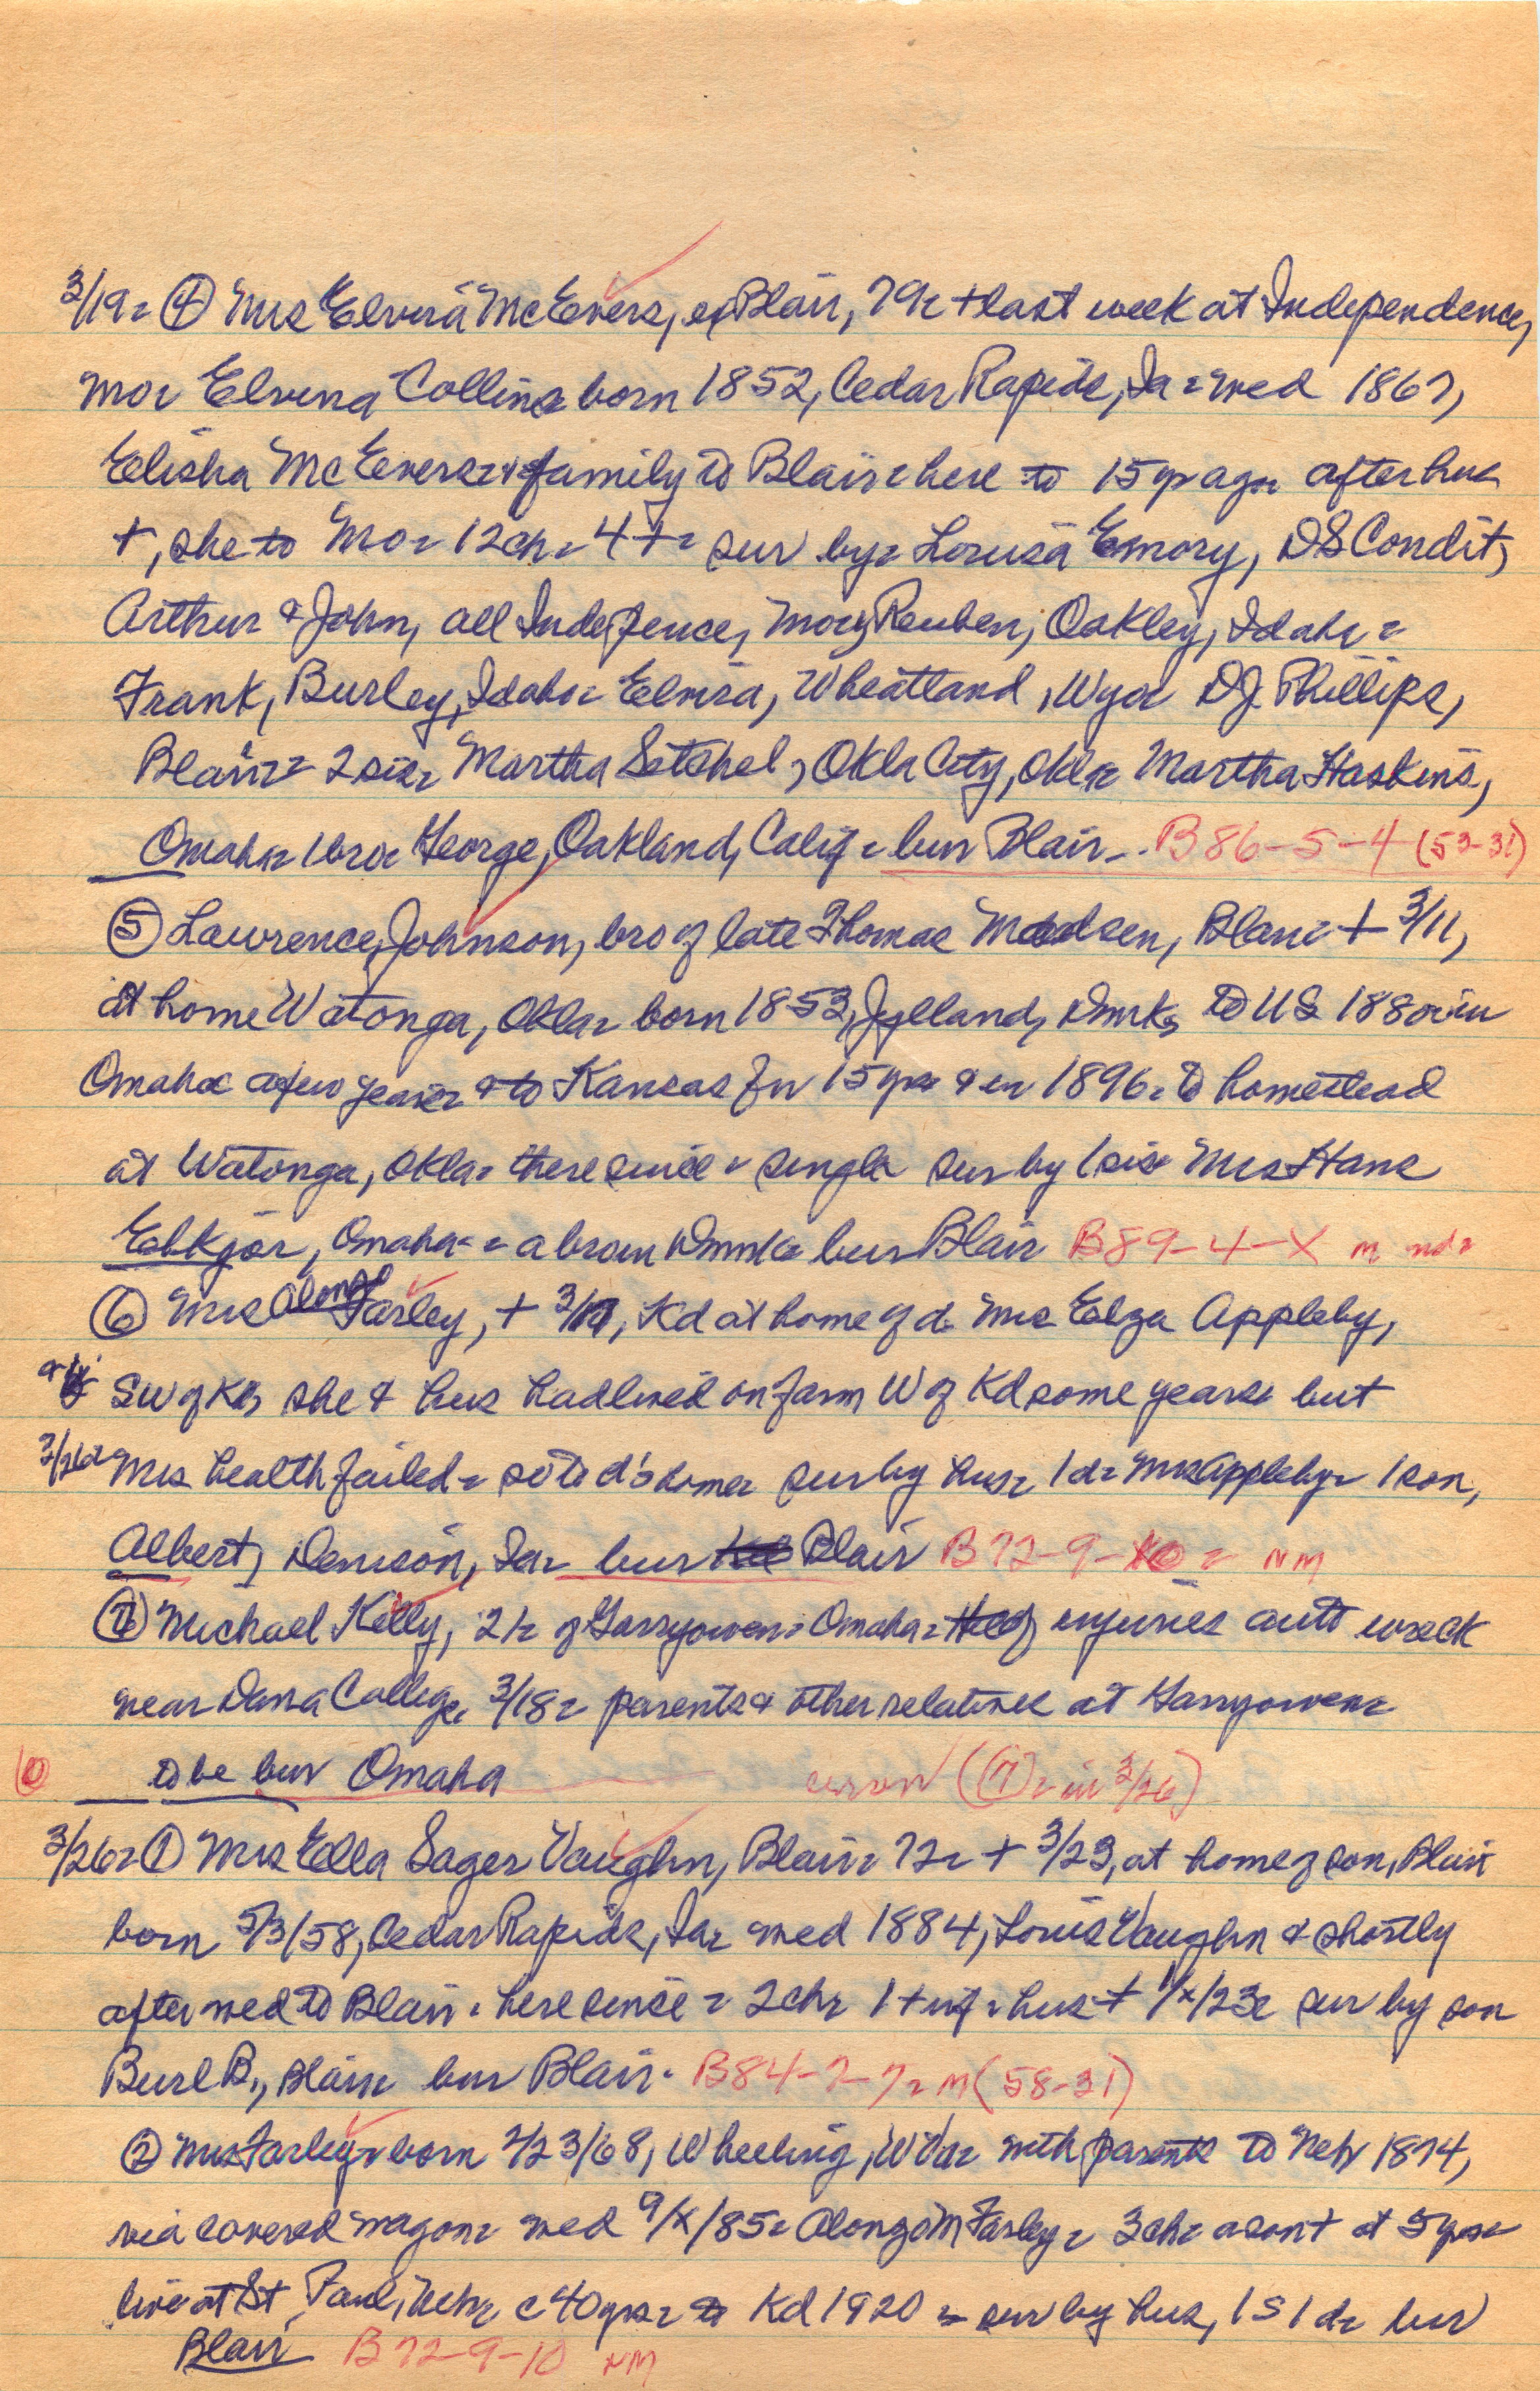 3/19- ④ Mrs Elvira McEvers, ex Blair, 79- + last week at Independence,
Mo- Elvina Collins- born 1852, Cedar Rapids, Ia- wed 1867,
Elisha McEvers- & family to Blair- here to 15 yr ago- after hus
+, she to Mo- 12 ch- 4 +- sur by- Louisa Emory, DS Condit,
Arthur & John, all Indepence, Mo- Reuben, Oakley, Idaho-
Frank, Burley, Idaho- Elvira, Wheatland, Wyo- DJ Phillips,
Blair- 2 sis- Martha Setchel, Okla City, Okla- Martha Haskins,
Omaha- 1 bro- George, Oakland, Calif- bur Blair-. B86-5-4 (53-31)
⑤ Lawrence Johnson, bro of late Thomas Madsen, Blair- + 3/11,
at home Watonga, Okla- born 1853, Jylland, Dnmk, to US 1880- in
Omaha a few years- & to Kansas for 15 yrs & in 1896- to homestead
at Watonga, Okla- there since- single sur by 1 sis- Mrs Hans
Ebkjar, Omaha- - a bro in Dnmk- bur Blair B89-4-X m nd-
⑥ Mrs Alonzo Farley, + 3/17, Kd at home of d- Mrs Elza Appleby,
SW of Kd, she & hus had lived on farm W of Kd some years but
3/26- Mrs health failed- so to d's home- sur by hus- 1 d- Mrs Appleby- 1 son,
Albert, Denison, Ia- bur Kd Blair B72-9-10- NM
⑦ Michael Kelly, 21- of Garryowen- Omaha- of injuries auto wreck
near Dana College, 3/18- parents & other relatives at Garryowen-
to be bur Omaha (⑦- in 3/26)
3/26- ① Mrs Ella Sager Vaughn, Blair- 72- + 3/23, at home of son, Blair
born 5/3/58, Cedar Rapids, Ia- wed 1884, Louis Vaughn & shortly
after wed to Blair- here since- 2 ch- 1 + inf- hus + 1/x/23- sur by son
Burl B., Blair- bur Blair- B84-7-7- M (58-31)
② Mrs Farley- born 2/23/68, Wheeling, WVa- with parents to Neb 1874,
via covered wagon- wed 9/x/85- Alonzo M Farley- 3 ch- a son + at 5 yrs-
live at St Paul, Neb- c 40 yrs- to Kd 1920- sur by hus, 1 S 1 d- bur
Blair B72-9-10 NM